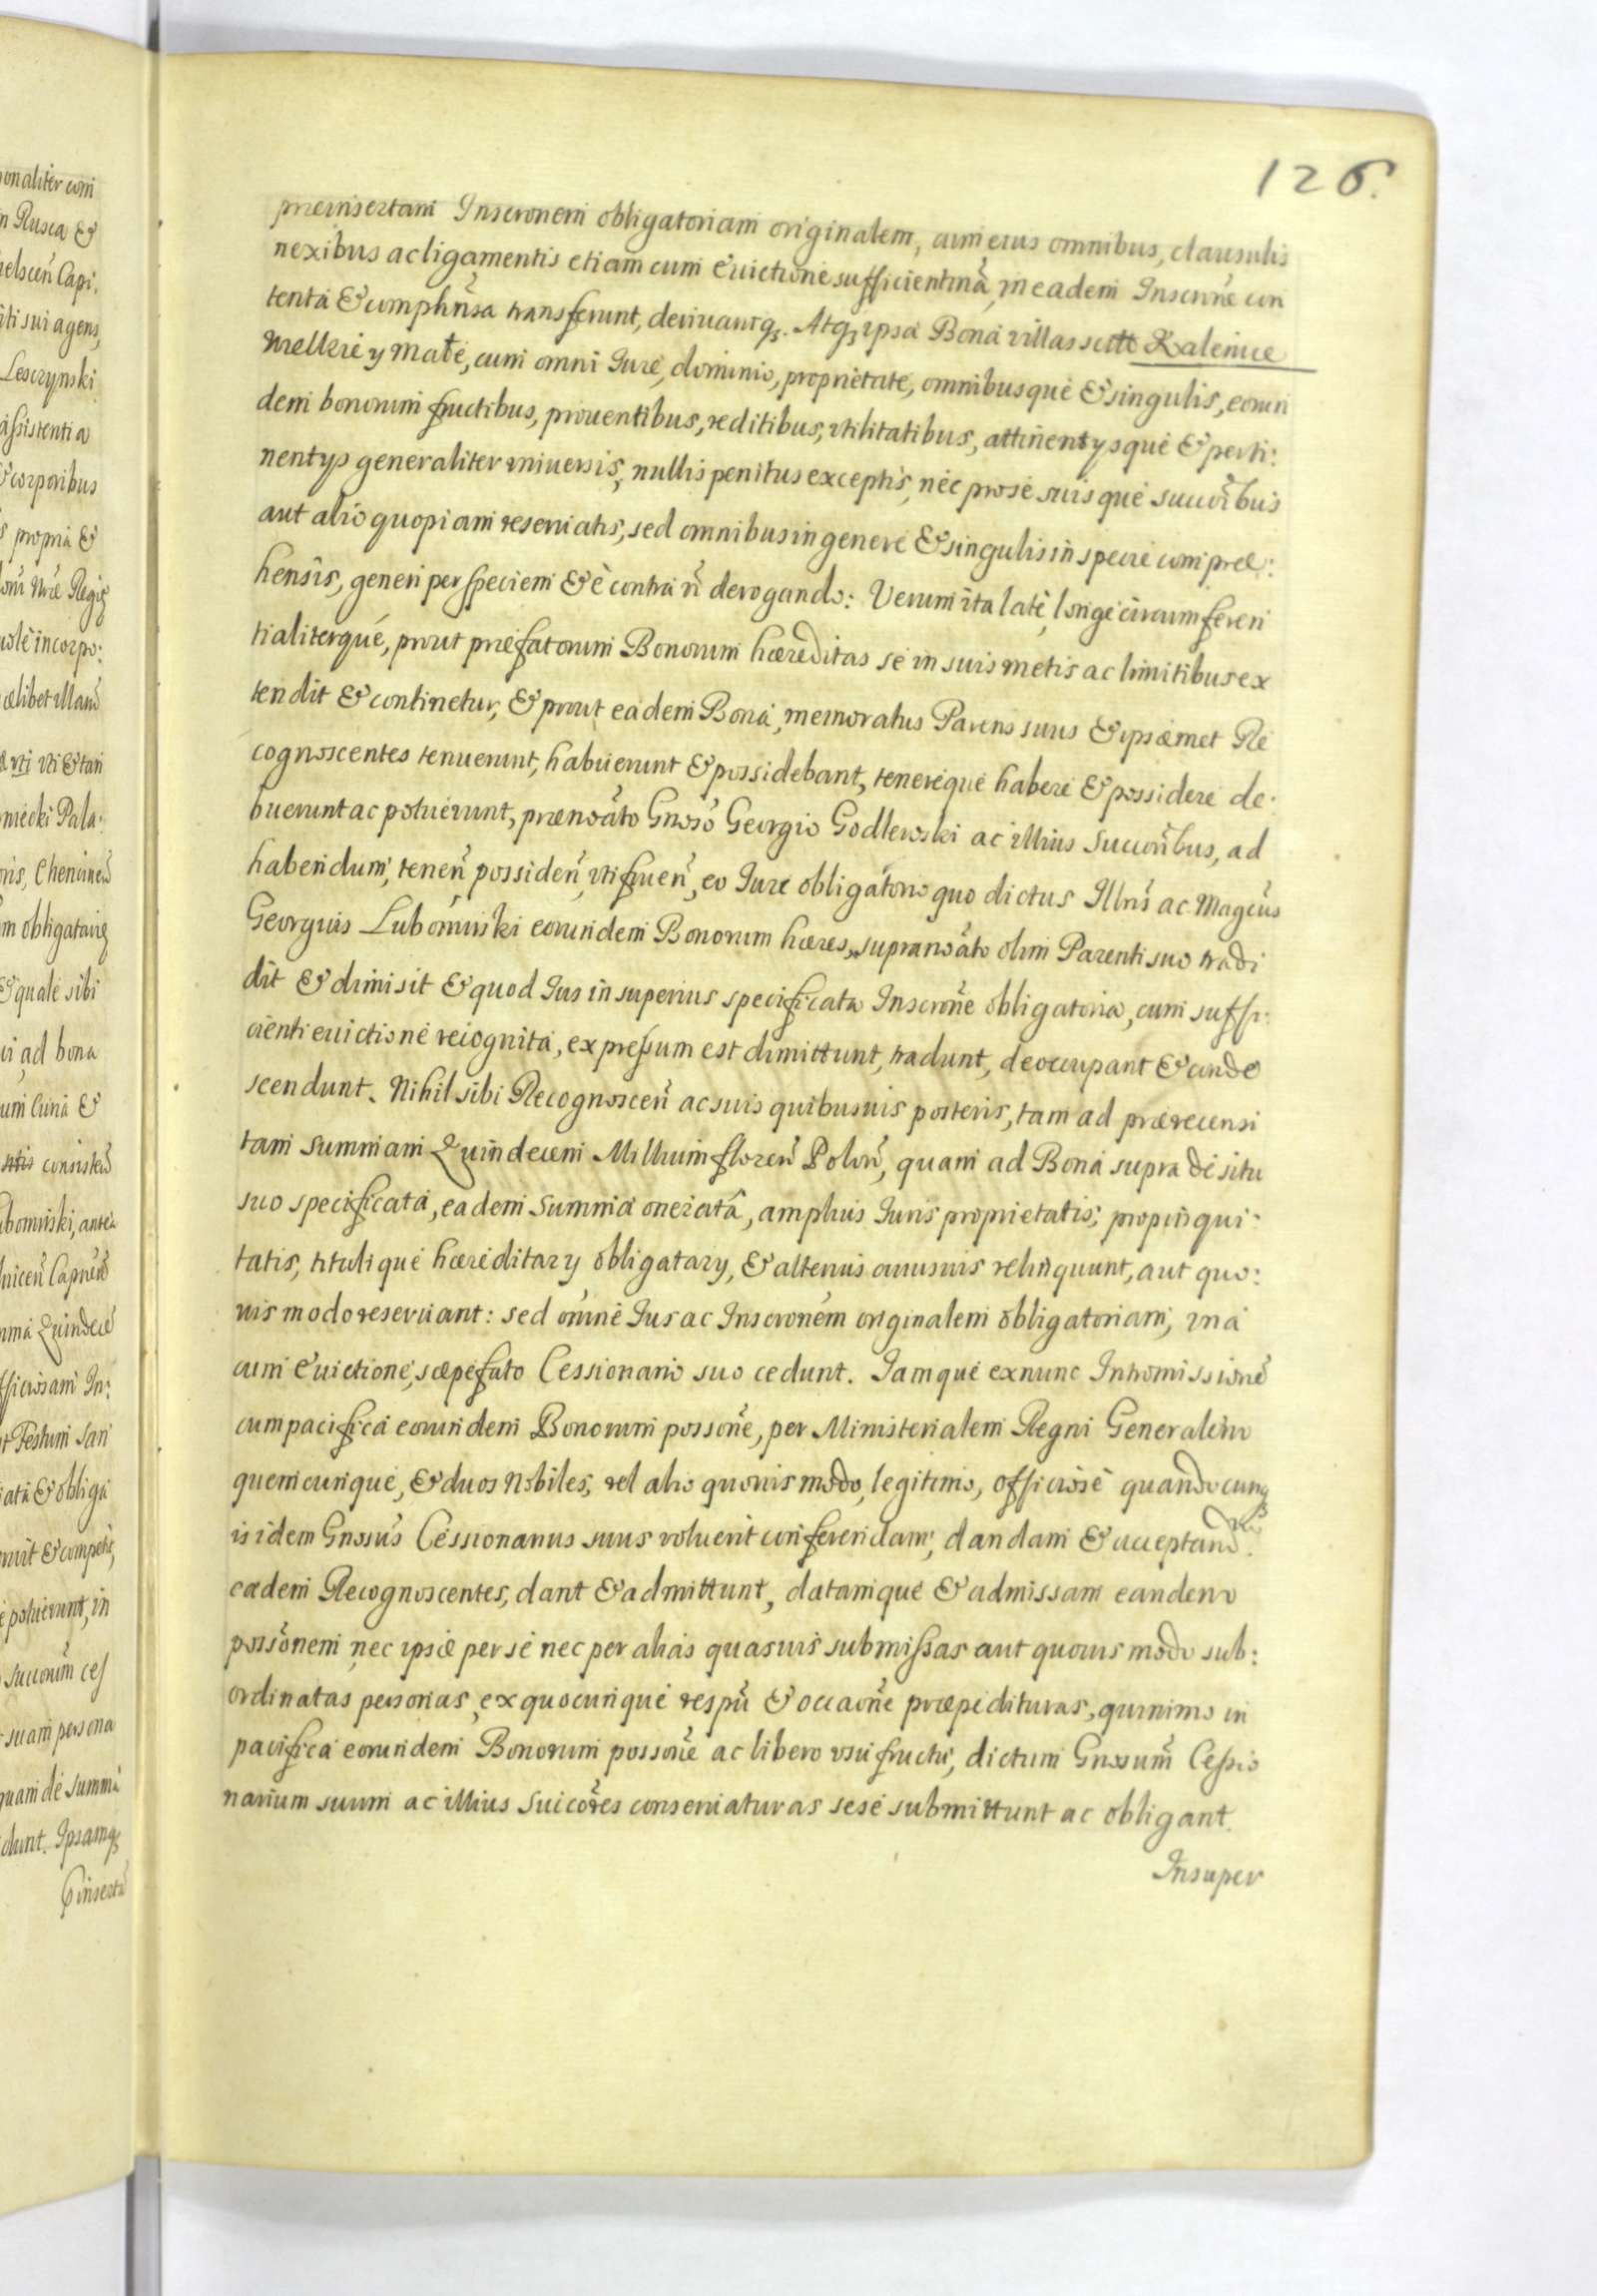 126.
præinsertam Inscronem obligatoriam originalem, cum eius omnibus, clausulis
nexibus ac ligamentis etiam cum euictione sufficientina, in eadem Inscrine con
tenta & comphnsa transferunt, deriuantq₃. Atq₃ ipsa Bona villas scilt Zalenice
Wielkie y Małe, cum omni Jure, dominio, proprietate, omnibusque & singulis, eorun
dem bonorum fructibus, prouentibus, reditibus, vtilitatibus, attinentysque & perti:
nentys generaliter vniuersis, nullis penitus exceptis, nec pro se suisque succoribus
aut alio quopiam reseruatis, sed omnibus in genere & singulis in specie compræ:
hensis, generi per speciem & è contra ñ derogando: Verum ita latè, longè circumferen
tialiterque, prout præfatorum Bonorum hæreditas se in suis metis ac limitibus ex
tendit & continetur, & prout eadem Bona, memoratus Parens suus & ipsæmet Re
cognoscentes tenuerunt, habuerunt & possidebant, tenereque habere & possidere de:
buerunt ac potuerunt, prænoato Gnoso Georgio Godlewski ac illius Succoribus, ad
habendum, teneñ possideñ, vtifrueñ, eo Jure obligatorio quo dictus Illris ac Magcus
Georgius Lubomirski eorundem Bonorum hæres, supranoato olim Parenti suo tradi
dit & dimisit & quod Jus in superius specificata Inscrone obligatoria, cum suffi:
cienti euictione recognita, expressum est dimittunt, tradunt, deoccupant & conde
scendunt. Nihil sibi Recognosceñ ac suis quibusuis posteris, tam ad prærecensi
tam Summam Quindecem Millium floreñ Poloñ, quam ad Bona supra de situ
suo specificata, eadem Summa oneratâ, amplius Juris proprietatis, propinqui:
tatis, titulique hæreditary obligatary, & alterius cuiusuis relinquunt, aut quo:
uis modo reseruant: sed omne Jus ac Inscronem originalem obligatoriam, vna
cum euictione, sæpefato Cessionario suo cedunt. Jamque exnunc Intromissione
cum pacifica eorundem Bonorum possone, per Ministerialem Regni Generalem
quemcunque, & duos Nobiles, vel alio quouis modo, legitimo, officiosè quandocunq₃
is idem Gnosus Cessionarius suus voluerit conferendam, dandam & acceptand.
eædem Recognoscentes, dant & admittunt, datamque & admissam eandem
possonem nec ipsæ per se nec per alias quasuis submissas aut quouis modo sub:
ordinatas personas, ex quocunque respu & occaone præpedituras, quinimo in
pacifica eorundem Bonorum possone ac libero vsufructu, dictum Gnosum Cessio
narium suum ac illius Succores conseruaturas sese submittunt ac obligant.
Insuper